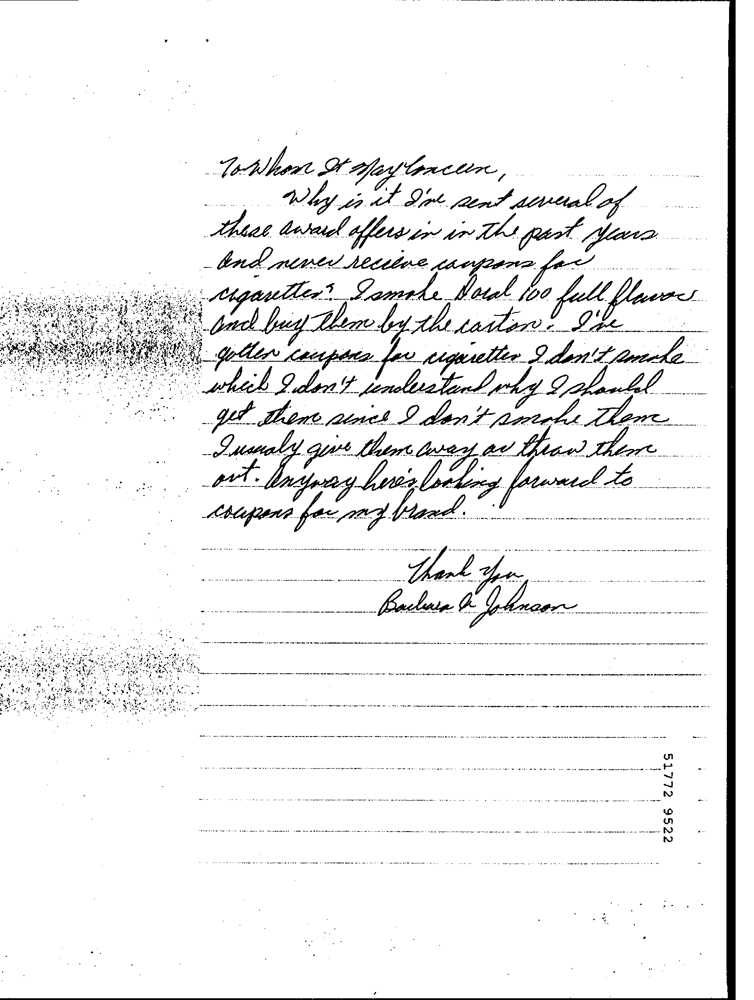 To Whom It May Concern,
Why is it I've sent several of
these award offers in in the past years
and never recieve coupons for
cigarettes? I smoke Doral 100 full flavor
and buy them by the carton. I've
gotten coupons for cigarettes I don't smoke
which I don't understand why I should
get them since I don't smoke them
I usualy give them away or throw them
out. Anyway here's looking forward to
coupons for my brand.
Thank You
Barbara A Johnson
51772 9522